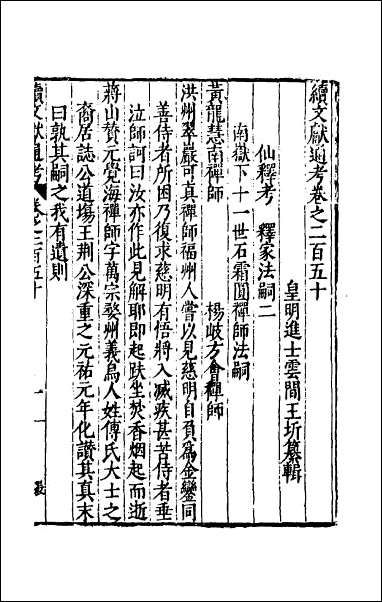 續文獻通考卷之二百五十
皇明進士雲間王圻纂輯
仙釋考　釋家法嗣二
南嶽下十一世石霜圓禪師法嗣
黃龍慧南禪師　楊岐方會禪師
洪州翠巖可真禪師福州人嘗以見慈明自負為金鑾同
善侍者所困乃復求慈明有悟將入滅疾甚苦侍者垂
泣師訶曰汝亦作此見解耶即起趺坐焚香烟起而逝
蔣山贊元覺海禪師字萬宗婺州義烏人姓傅氏大士之
裔居誌公道場王荊公深重之元祐元年化讚其真末
曰孰其嗣之我有遺則
續文獻通考　卷之二百五十　一